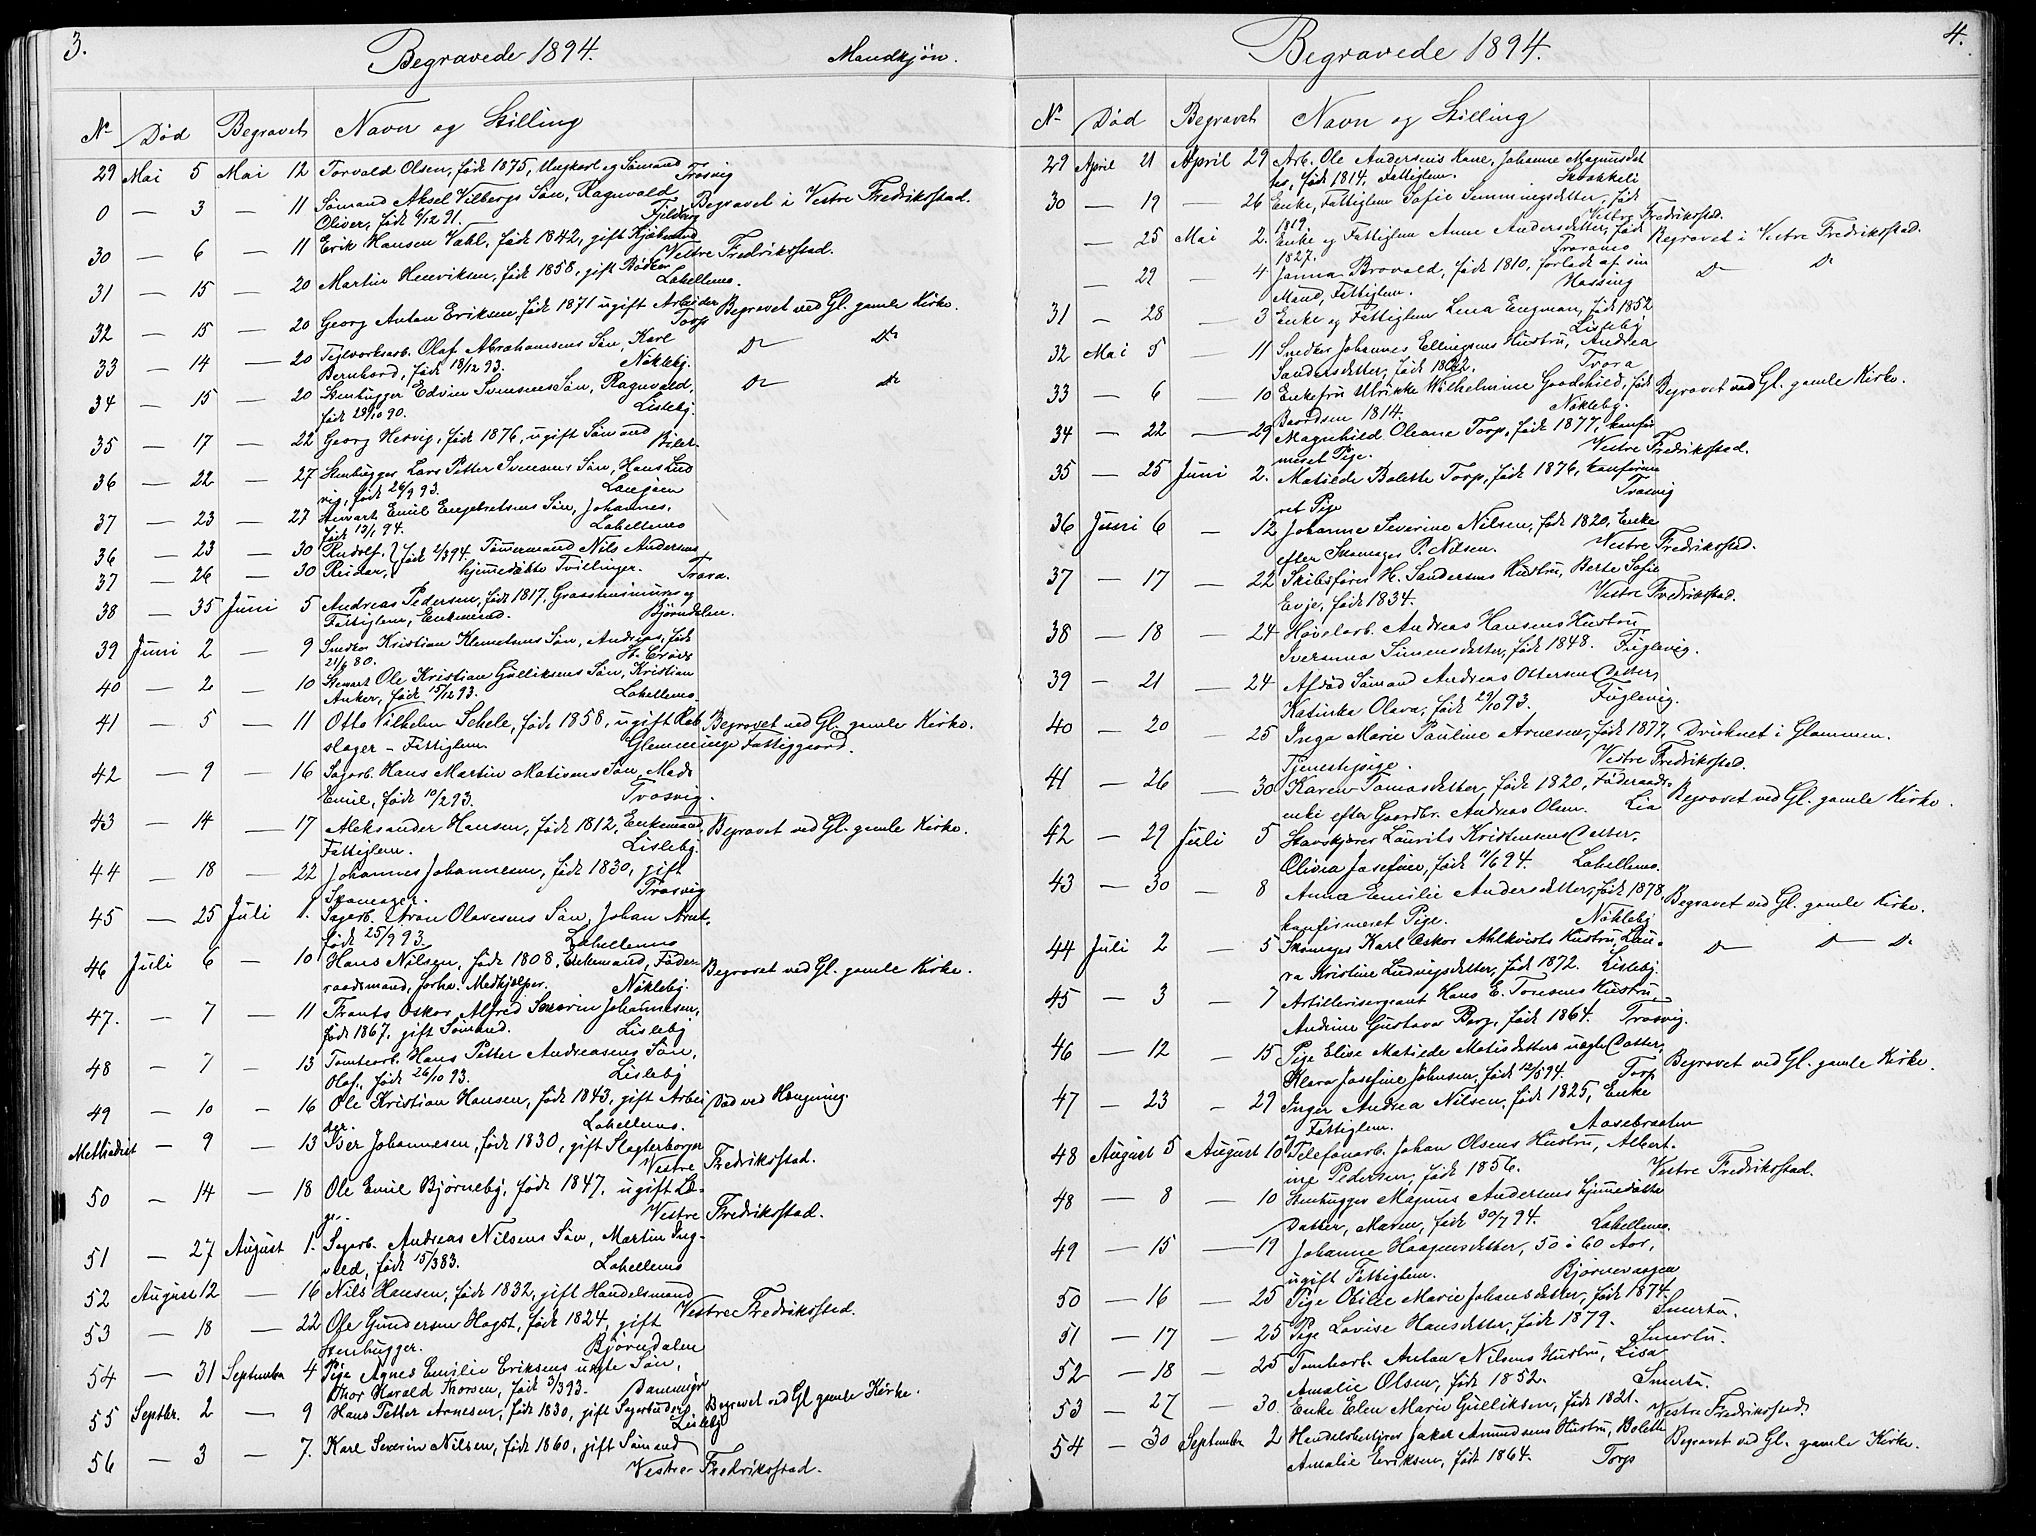 3.
Begravede 1894. Mandkjøn.
No Død Begravet Navn og Stilling
29 Mai 5 Mai 12 Torvald Olsen, født 1875, Ungkarl og Sømand
Trosvig
0 — 3 — 11 Sømand Aksel Vilbergs Søn, Ragnvald Begravet i Vestre Fredrikstad.
Oliver, født 6/12 91. Fjeldberg
30 — 6 — 11 Erik Hansen Vahl, født 1842, gift
Vestre Fredrikstad.
31 — 15 — 20 Martin Henriksen, født 1858, gift Bødker
Labellemo.
32 — 15 — 20 Georg Anton Eriksen, født 1871 ugift Arbeider Begravet ved Gl. gamle Kirke.
Torp
33 — 14 — 20 Teglverksarb. Olaf Abrahamsens Søn, Karl Do Do
Bernhard, født 18/12 93. Nøkleby.
34 — 15 — 20 Stenhugger Edvin Svensens Søn, Ragnvald, Do Do
født 28/10 90. Lisleby.
35 — 17 — 22 Georg Hesvig, født 1876, ugift Sømand
36 — 22 — 27 Stenhugger Lars Petter Svensens Søn, Hans Lud
vig, født 26/9 93.
37 — 23 — 27 Emil Engebretsens Søn, Johannes,
født 12/1 94. Labellemo
36 — 23 — 30 Rudolf, } født 2/3 94. Tømmermand Nils Andersens
37 — 26 — 30 Reidar, } hjemmedøbte Tvillinger. Trara.
38 — 35 Juni 5 Andreas Pedersen, født 1817, Graastensmurer og
Fattiglem, Enkemand. Bjørndalen.
39 Juni 2 — 9 Snedker Kristian Klemetsens Søn, Andreas, født
80.
40 — 2 — 10 Stenarb. Ole Kristian Gulliksens Søn, Kristian
Anker, født 15/12 93. Labellemo.
41 — 5 — 11 Otto Vilhelm Schele, født 1858, ugift Reb Begravet ved Gl. gamle Kirke.
slager – Fattiglem Glemminge Fattiggaard.
42 — 9 — 16 Sagarb. Hans Martin Matisens Søn, Mads
Emil, født 10/2 93. Trosvig.
43 — 14 — 17 Aleksander Hansen, født 1812, Enkemand, Begravet ved Gl. gamle Kirke.
Fattiglem. Lisleby.
44 — 18 — 22 Johannes Johannesen, født 1830, gift
Skomager. Trosvig
45 — 25 Juli 1. Sagarb. Aron Olavesens Søn, Johan Arnt,
født 25/9 93. Labellemo
46 Juli 6 — 10 Hans Nilsen, født 1808, Enkemand, Føder- Begravet ved Gl. gamle Kirke.
raadsmand, forhv. Medhjælper. Nøkleby.
47. — 7 — 11 Frants Oskar Alfred Severin Johannesen,
født 1867, gift Sømand. Lisleby
48 — 7 — 13 Tomtearb. Hans Petter Andreasens Søn,
Olaf, født 26/10 93. Lisleby
49 — 10 — 16 Ole Kristian Hansen, født 1843, gift Arbei Død ved Hængning.
der. Labellemo.
Methodist — 9 — 13 Iver Johannesen, født 1830, gift Slagterborger
Vestre Fredrikstad.
50 — 14 — 18 Ole Emil Bjørneby, født 1847, ugift Læ-
ge. Vestre Fredrikstad.
51 — 27 August 1. Sagarb. Andreas Nilsens Søn, Martin Ing-
vald, født 15/3 83. Labellemo
52 August 12 — 16 Nils Hansen, født 1832, gift Handelsmand
Vestre Fredrikstad.
53 — 18 — 22 Ole Gundersen Hagst, født 1824, gift
Stenhugger. Bjørndalen
54 — 31 September 4 Pige Agnes Emilie Eriksens uægte Søn,
Thor Harald Thorsen, født 3/3 93. Dammyr
55 Septbr. 2 — 9 Hans Petter Arnesen, født 1830, gift Begravet ved Gl gamle Kirke.
Lisleby
56 — 3 — 7. Karl Severin Nilsen, født 1860, gift Sømand
Vestre Fredrikstad.
4.
Begravede 1894.
No Død Begravet Navn og Stilling
29 April 21 April 29 Arb. Ole Andersens Kone, Johanne Magnusdat
ter, født 1814, Fattiglem.
30 — 19 — 26 Enke, Fattiglem Sofie Semmingsdatter, født
1819. Vestre Fredrikstad.
— 25 Mai 2. Enke og Fattiglem Anne Andersdatter, født Begravet i Vestre Fredrikstad.
1827.
— 29 — 4 Janna Brovold, født 1810, forladt af sin Do Do
Mand, Fattiglem. Hassing
31 — 28 — 3 Enke og Fattiglem Lena Engman, født 1852
Lisleby
32 Mai 5 — 11 Snedker Johannes Ellingsens Hustru, Andrea
Sandersdatter, født 1822. Trara
33 — 6 — 10 Enkefru Ulrikke Wilhelmine Goodchild, født Begravet ved Gl. gamle Kirke.
Baardsen 1814. Nøkleby.
34 — 22 — 29 Magnhild Oleane Torp, født 1877, konfir
meret Pige. Vestre Fredrikstad.
35 — 25 Juni 2. Matilde Bolette Torp, født 1876, konfirme
ret Pige Trosvig
36 Juni 6 — 12 Johanne Severine Nilsen, født 1820, Enke
efter Skomager P. Nilsen. Vestre Fredrikstad.
37 — 17 — 22 Skibsfører H. Sandersens Hustru, Berte Sofie
Evje, født 1834. Vestre Fredrikstad.
38 — 18 — 24 Høvelarb. Andreas Hansens Hustru
Iverinna Simensdatter, født 1848. Fuglevig.
39 — 21 — 24 Afdød Sømand Andreas Ottersens Datter,
Katinka Olava, født 29/10 93. Fuglevig.
40 — 20 — 25 Inga Marie Pauline Arnesen, født 1877, Druknet i Glommen.
Tjenestepige. Vestre Fredrikstad.
41 — 26 — 30 Karen Tomasdatter, født 1820, Føderaads- Begravet ved Gl. gamle Kirke.
enke efter Gaardbr. Andreas Olsen. Lia
42 — 29 Juli 5 Stavskjærer Laurits Kristensens Datter,
Olivia Josefine, født 11/6 94. Labellemo.
43 — 30 — 8 Anna Emilie Andersdatter, født 1878, Begravet ved Gl. gamle Kirke.
konfirmeret Pige. Nøkleby
44 Juli 2 — 5 Skomager Karl Oskar Ahlkvists Hustru, Lau- Do — Do — Do
ra Kristine Ludvigsdatter, født 1872. Lisleby.
45 — 3 — 7 Artillerisergeant Hans E. Toresens Hustru
Andrine Gustava Berg, født 1864. Trosvig.
46 — 12 — 15 Pige Elise Matilde Matisdatters uægte Datter, Begravet ved Gl. gamle Kirke.
Klara Josefine Johnsen, født 12/5 94. Torp
47 — 23 — 29 Inger Andrea Nilsen, født 1825, Enke
Fattiglem. Aasebraaten
48 August 5 August 10 Telefonarb. Johan Olsens Hustru, Albert-
ine Pedersen, født 1856. Vestre Fredrikstad.
48 — 8 — 10 Stenhugger Magnus Andersens hjemmedøbte
Datter, Maren, født 30/7 94. Labellemo.
49 — 15 — 19 Johanne Haagensdatter, 50 à 60 Aar,
ugift Fattiglem. Bjørnevaagen
50 — 16 — 25 Pige Otilie Marie Johansdatter, født 1874.
Smertu.
51 — 17 — 25 Pige Lovise Hansdatter, født 1879. Smertu.
52 — 18 — 25 Tomtearb. Anton Nilsens Hustru, Lisa
Amalie Olsen, født 1852. Smertu.
53 — 27 — 30. Enke Elen Marie Gulliksen, født 1821. Vestre Fredrikstad.
54 — 30 September 2 Handelsbetjener Jakob Amundsens Hustru, Bolette Begravet ved Gl. gamle Kirke.
Amalie Eriksen, født 1864. Torp